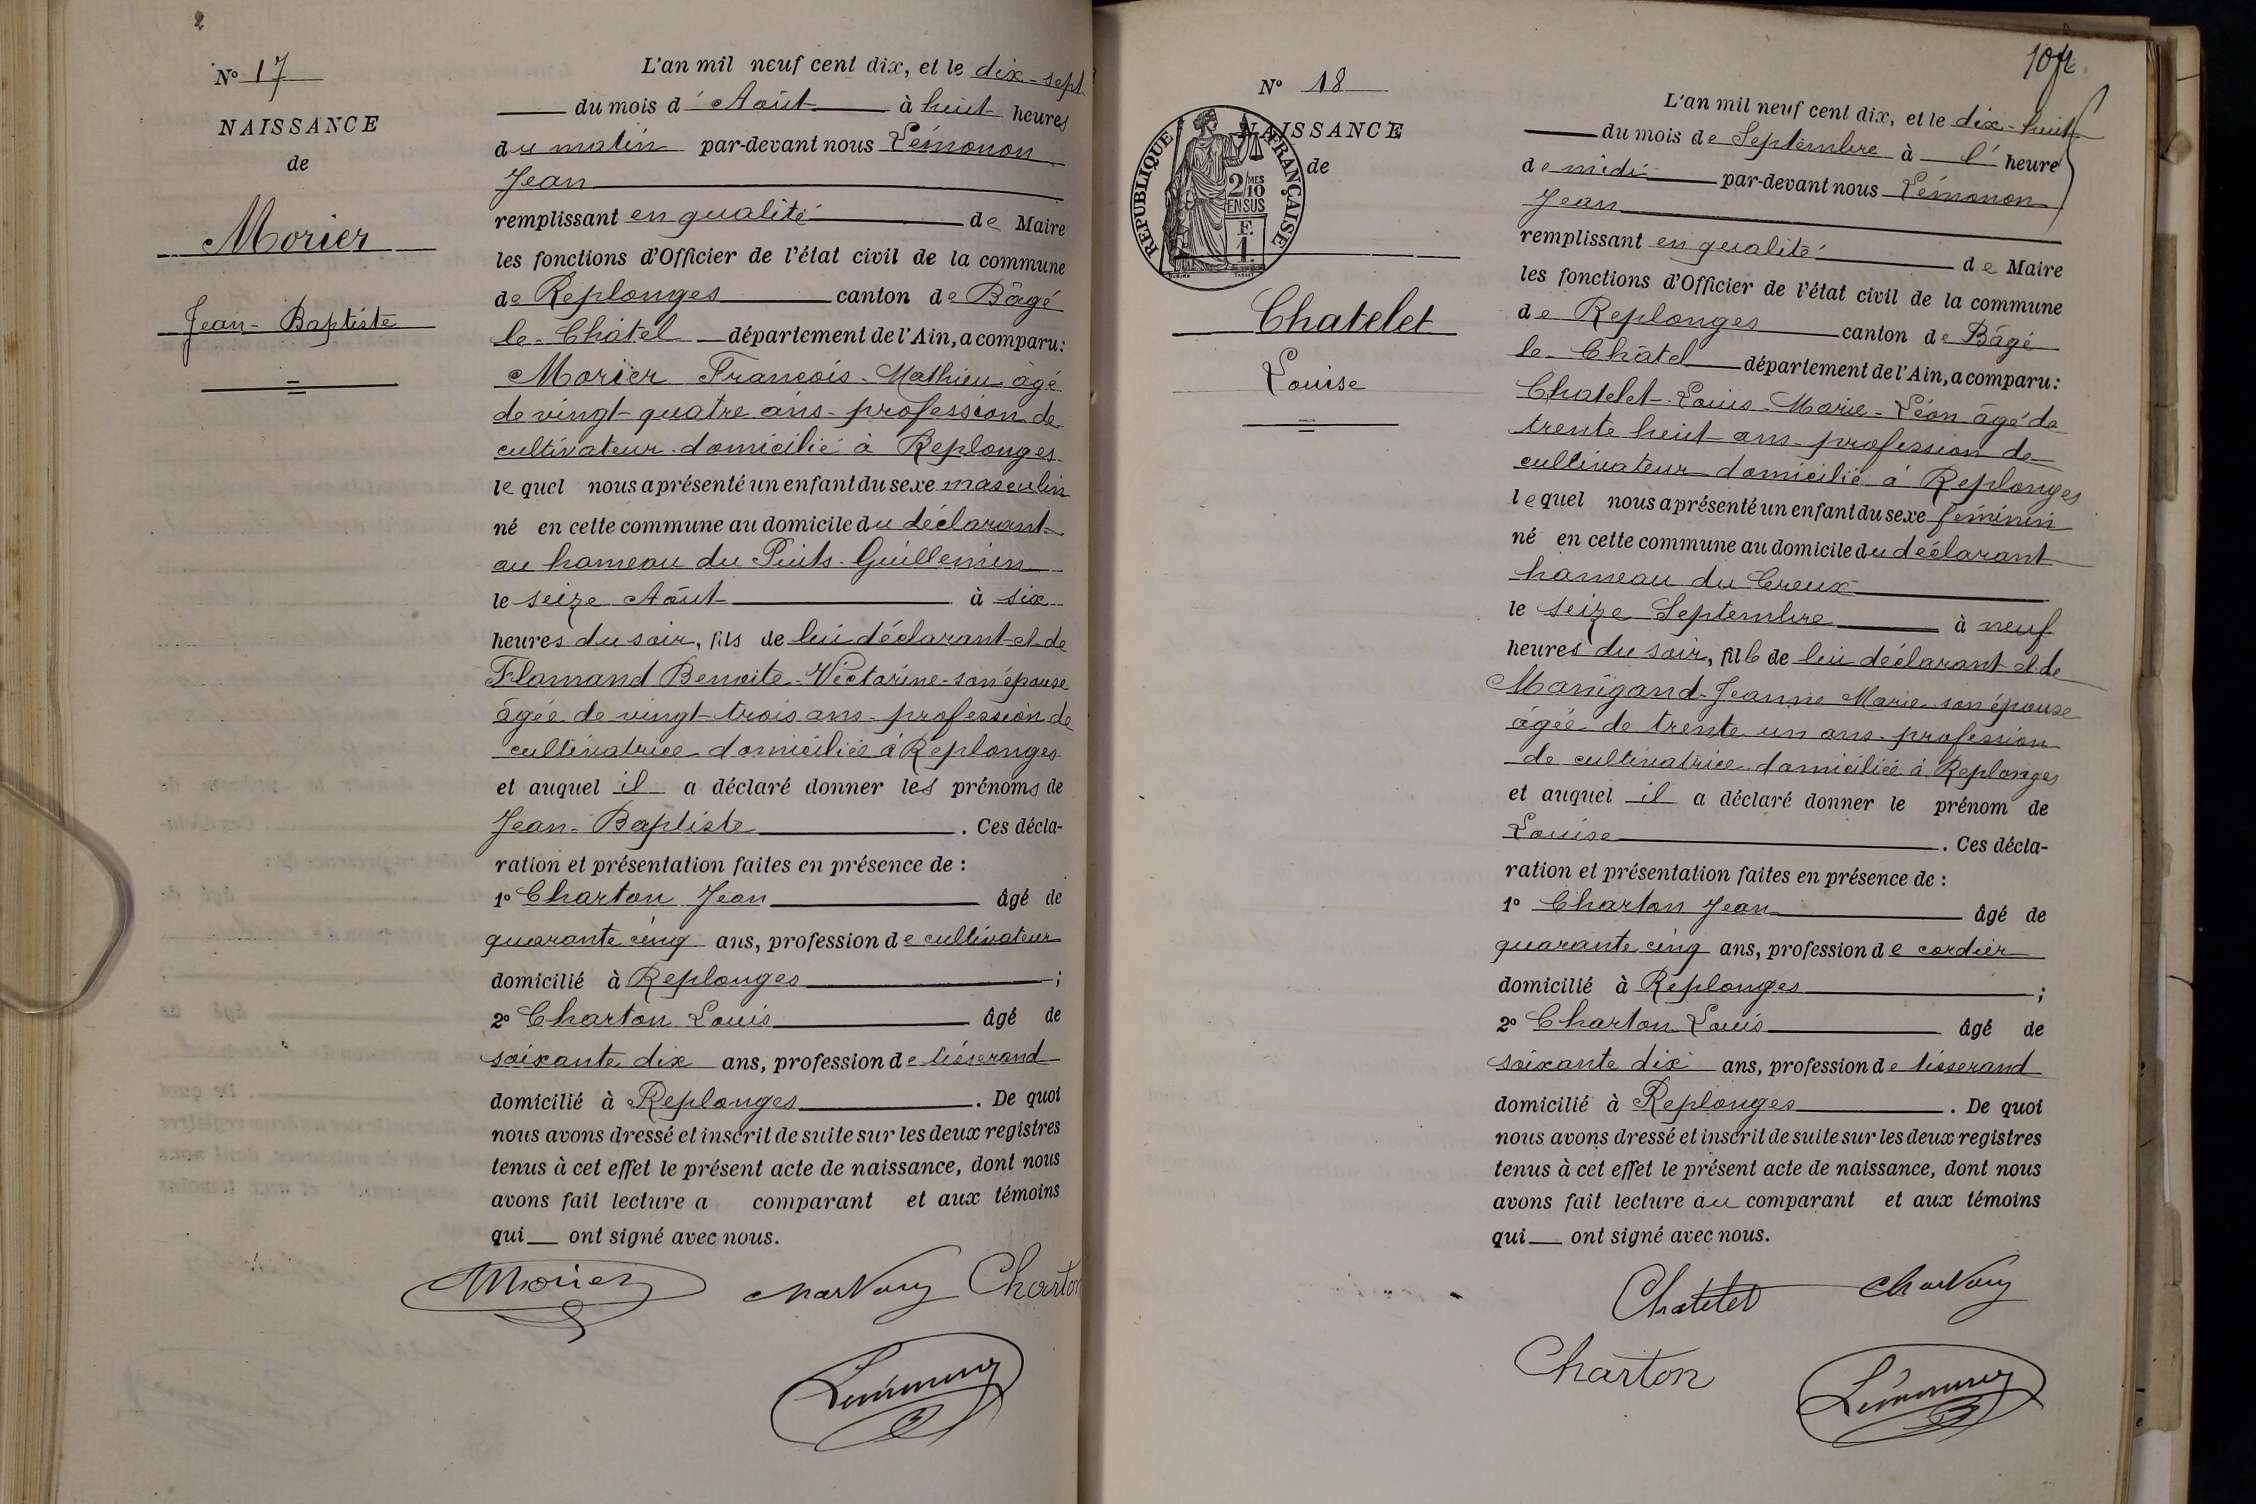 2
N° 17
NAISSANCE
de
Morier
Jean-Baptiste
L'an mil neuf cent dix, et le dix-sept
du mois d'Août à huit heures
du matin par-devant nous Lémonon
Jean
remplissant en qualité de Maire
les fonctions d'Officier de l'état civil de la commune
de Replonges canton de Bâgé
le-Châtel département de l'Ain, a comparu:
Morier François-Mathieu âgé
de vingt-quatre ans-profession de
cultivateur domicilié à Replonges
lequel nous a présenté un enfant du sexe masculin
né en cette commune au domicile du déclarant
au hameau du Puits-Guillemin
le seize Août à six
heures du soir, fils de lui déclarant et de
Flamand Benoite-Victorine-son épouse
âgée de vingt-trois ans-profession de
cultivatrice domiciliée à Replonges
et auquel il a déclaré donner les prénoms de
Jean-Baptiste. Ces décla-
ration et présentation faites en présence de :
1° Charton Jean âgé de
quarante cinq ans, profession de cultivateur
domicilié à Replonges ;
2° Charton Louis âgé de
soixante dix ans, profession de tisserand
domicilié à Replonges. De quoi
nous avons dressé et inscrit de suite sur les deux registres
tenus à cet effet le présent acte de naissance, dont nous
avons fait lecture a comparant et aux témoins
qui ont signé avec nous.
Morier Charton
Lémonon
104
N° 18
NAISSANCE
de
RÉPUBLIQUE FRANÇAISE
2/10MES
EN SUS
F.
1.
Chatelet
Louise
L'an mil neuf cent dix, et le dix-huit
du mois de Septembre à l'heure
de midi par-devant nous Lémonon
Jean
remplissant en qualité de Maire
les fonctions d'Officier de l'état civil de la commune
de Replonges canton de Bâgé
le-Châtel département de l'Ain, a comparu:
Chatelet-Louis-Marie-Léon âgé de
trente huit ans-profession de
cultivateur domicilié à Replonges
lequel nous a présenté un enfant du sexe féminin
né en cette commune au domicile du déclarant
hameau du Creux
le seize Septembre à neuf
heures du soir, fille de lui déclarant et de
Manigand-Jeanne Marie son épouse
âgée de trente un ans-profession
de cultivatrice domiciliée à Replonges
et auquel il a déclaré donner le prénom de
Louise. Ces décla-
ration et présentation faites en présence de :
1° Charton Jean âgé de
quarante cinq ans, profession de cordier
domicilié à Replonges ;
2° Charton Louis âgé de
soixante dix ans, profession de tisserand
domicilié à Replonges. De quoi
nous avons dressé et inscrit de suite sur les deux registres
tenus à cet effet le présent acte de naissance, dont nous
avons fait lecture au comparant et aux témoins
qui ont signé avec nous.
Chatelet
Charton Lémonon